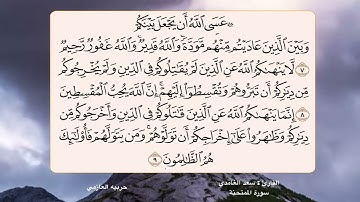 ۞ عَسَى ٱللَّهُ أَن يَجْعَلَ بَيْنَكُمْ
وَبَيْنَ ٱلَّذِينَ عَادَيْتُم مِّنْهُم مَّوَدَّةً ۚ وَٱللَّهُ قَدِيرٌ ۚ وَٱللَّهُ غَفُورٌ رَّحِيمٌ
٧ لَّا يَنْهَىٰكُمُ ٱللَّهُ عَنِ ٱلَّذِينَ لَمْ يُقَـٰتِلُوكُمْ فِى ٱلدِّينِ وَلَمْ يُخْرِجُوكُم مِّن
دِيَـٰرِكُمْ أَن تَبَرُّوهُمْ وَتُقْسِطُوٓا۟ إِلَيْهِمْ ۚ إِنَّ ٱللَّهَ يُحِبُّ ٱلْمُقْسِطِينَ
٨ إِنَّمَا يَنْهَىٰكُمُ ٱللَّهُ عَنِ ٱلَّذِينَ قَـٰتَلُوكُمْ فِى ٱلدِّينِ وَأَخْرَجُوكُم مِّن
دِيَـٰرِكُمْ وَظَـٰهَرُوا۟ عَلَىٰٓ إِخْرَاجِكُمْ أَن تَوَلَّوْهُمْ ۚ وَمَن يَتَوَلَّهُمْ فَأُو۟لَـٰٓئِكَ
هُمُ ٱلظَّـٰلِمُونَ ٩
القارئ : سعد الغامدي
سورة الممتحنة
حربيه العازمي